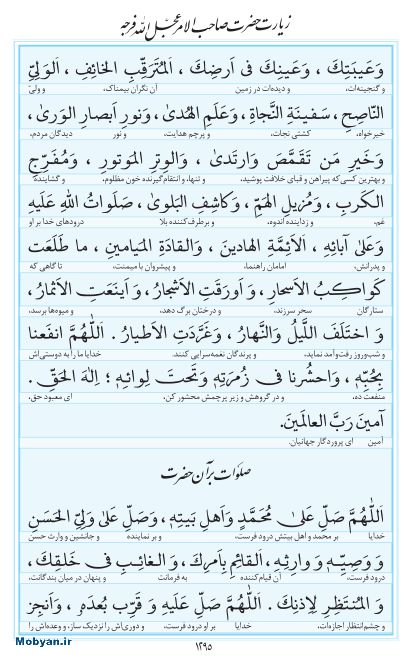 زیارت حضرت صاحب الامر عجل الله فرجه
وَعَيبَتِكَ ، وَعَينِكَ فى اَرضِكَ ، اَلمُتَرَقِّبِ الخائِفِ ، اَلوَلِىِّ
و گنجینه‌ات، و دیده‌ات در زمین آن نگران بیمناک، و ولیّ
النّاصِحِ ، سَفينَةِ النَّجاةِ ، وَعَلَمِ الهُدىٰ، وَنورِ اَبصارِ الوَرىٰ،
خیرخواه، کشتی نجات، و پرچم هدایت، و نور دیدگان مردم،
وَخَيرِ مَن تَقَمَّصَ وَارتَدىٰ ، وَالوِترِ المَوتورِ ، وَمُفَرِّجِ
و بهترین کسی که پیراهن و قبای خلافت پوشید، و تنها، و انتقام‌گیرنده خون مظلوم، و گشاینده
الكَربِ ، وَمُزيلِ الهَمِّ ، وَكاشِفِ البَلوىٰ ، صَلَواتُ اللّٰهِ عَلَيهِ
غم، و زداینده اندوه، و برطرف‌کننده بلا درودهای خدا بر او
وَعَلىٰ آبائِهِ ، اَلاَئِمَّةِ الهادينَ ، وَالقادَةِ المَيامينِ ، ما طَلَعَت
و پدرانش، امامان راهنما، و پیشروان با میمنت، تا گاهی که
كَواكِبُ الاَسحارِ ، وَ اَورَقَتِ الاَشجارُ ، وَ اَينَعَتِ الاَثمارُ ،
ستارگان سحر سرزند، و درختان برگ دهد، و میوه‌ها برسد،
وَ اختَلَفَ اللَّيلُ وَالنَّهارُ ، وَغَرَّدَتِ الاَطيارُ . اَللّٰهُمَّ انفَعنا
و شب‌وروز رفت‌وآمد نماید، و پرندگان نغمه‌سرایی کنند. خدایا ما را به دوستی‌اش
بِحُبِّهِ ، وَاحشُرنا فى زُمرَتِهِ وَتَحتَ لِوائِهِ ؛ اِلٰهَ الحَقِّ .
منفعت ده، و در گروهش و زیر پرچمش محشور کن. ای معبود حق.
آمينَ رَبَّ العالَمينَ.
آمین ای پروردگار جهانیان.
صلوات بر آن حضرت
اَللّٰهُمَّ صَلِّ عَلىٰ مُحَمَّدٍ وَاَهلِ بَيتِهِ ، وَصَلِّ عَلىٰ وَلِىِّ الحَسَنِ
خدایا بر محمد و اهل بیتش درود فرست، و بر نماینده و جانشین و وارث حسن
وَ وَصِيِّهِ وَ وارِثِهِ ، اَلقائِمِ بِاَمرِكَ ، وَ الغائِبِ فى خَلقِكَ ،
درود فرست، آن قیام‌کننده به فرمانت و پنهان در میان بندگانت،
وَ المُنتَظِرِ لِاِذنِكَ . اَللّٰهُمَّ صَلِّ عَلَيهِ وَ قَرِّب بُعدَهُ ، وَ اَنجِز
و چشم‌انتظار اجازه‌ات. خدایا بر او درود فرست، و دوری‌اش را نزدیک ساز، و وعده‌اش را
Mobyan.ir
۱۲۹۵